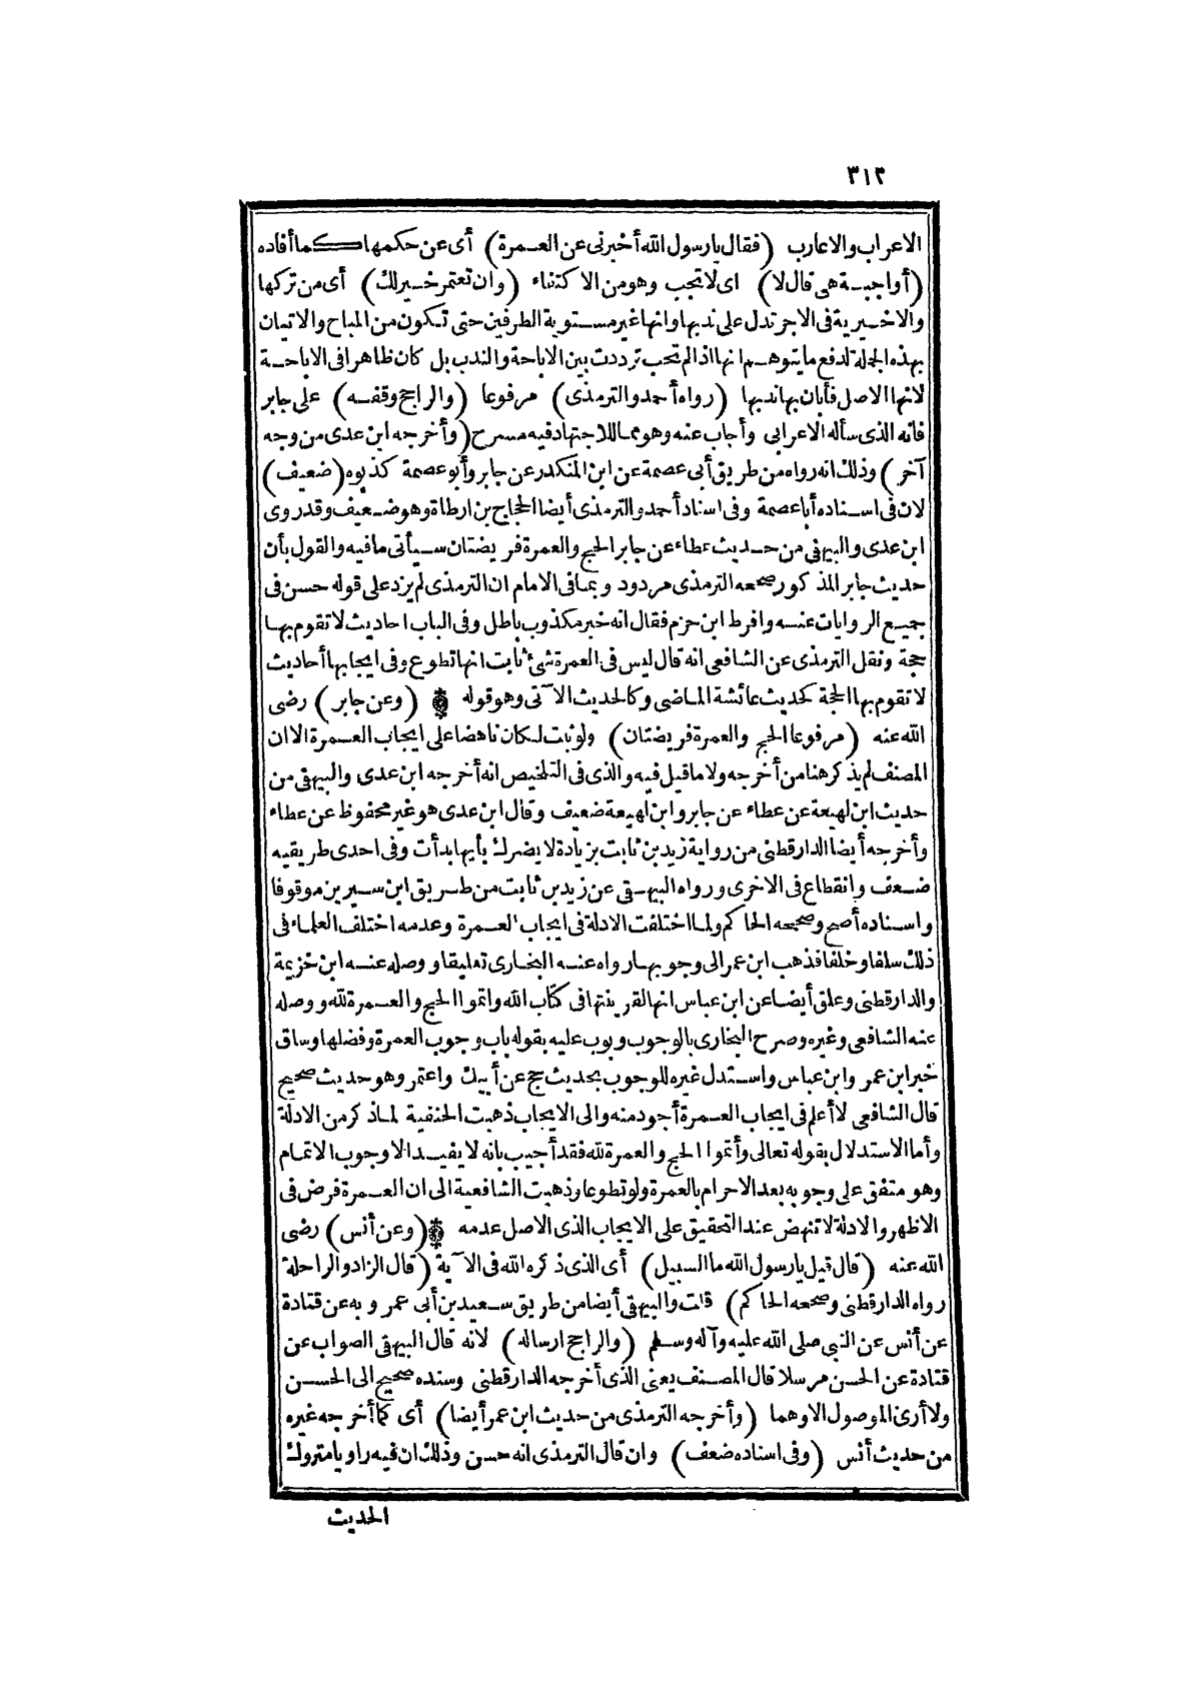 ٣١٢
الاعراب والاعارب (فقال يا رسول الله أخبرنى عن العمرة) أى عن حكمها كما أفاده
(أواجبة هى قال لا) اى لا تجب وهو من الاكتفاء (وان تعتمر خير لك) أى من تركها
والاخيرية فى الاجر تدل على ندبها وانها غير مستوية الطرفين حتى تكون من المباح والاتيان
بهذه الجملة لدفع ما يتوهم انها اذا لم تجب ترددت بين الاباحة والندب بل كان ظاهرا فى الاباحة
لانها الاصل فأبان بها ندبها (رواه أحمد والترمذى) مرفوعا (والراجح وقفه) على جابر
فانه الذى سأله الاعرابى وأجاب عنه وهو مما للاجتهاد فيه مسرح (وأخرجه ابن عدى من وجه
آخر) وذلك انه رواه من طريق أبى عصمة عن ابن المنكدر عن جابر وأبو عصمة كذبوه (ضعيف)
لان فى اسناده أبا عصمة وفى اسناد أحمد والترمذى أيضا الحجاج بن ارطاة وهو ضعيف وقد روى
ابن عدى والبيهقى من حديث عطاء عن جابر الحج والعمرة فريضتان سيأتى ما فيه والقول بأن
حديث جابر المذكور صححه الترمذى مردود وبما فى الامام ان الترمذى لم يزد على قوله حسن فى
جميع الروايات عنه وافرط ابن حزم فقال انه خبر مكذوب باطل وفى الباب احاديث لا تقوم بها
حجة ونقل الترمذى عن الشافعى انه قال ليس فى العمرة شئ ثابت انها تطوع وفى ايجابها أحاديث
لا تقوم بها الحجة كحديث عائشة الماضى وكالحديث الآتى وهو قوله (وعن جابر) رضى
الله عنه (مرفوعا الحج والعمرة فريضتان) ولو ثبت لكان ناهضا على ايجاب العمرة الا ان
المصنف لم يذكر هنا من أخرجه ولا ما قيل فيه والذى فى التلخيص انه أخرجه ابن عدى والبيهقى من
حديث ابن لهيعة عن عطاء عن جابر وابن لهيعة ضعيف وقال ابن عدى هو غير محفوظ عن عطاء
وأخرجه أيضا الدارقطنى من رواية زيد بن ثابت بزيادة لا يضرك بأيها بدأت وفى احدى طريقيه
ضعف وانقطاع فى الاخرى ورواه البيهقى عن زيد بن ثابت من طريق ابن سيرين موقوفا
واسناده أصح وصححه الحاكم ولما اختلفت الادلة فى ايجاب العمرة وعدمه اختلف العلماء فى
ذلك سلفا وخلفا فذهب ابن عمر الى وجوبها رواه عنه البخارى تعليقا ووصله عنه ابن خزيمة
والدارقطنى وعلق أيضا عن ابن عباس انها لقرينتها فى كتاب الله واتموا الحج والعمرة لله ووصله
عنه الشافعى وغيره وصرح البخارى بالوجوب وبوب عليه بقوله باب وجوب العمرة وفضلها وساق
خبر ابن عمر وابن عباس واستدل غيره للوجوب بحديث حج عن أبيك واعتمر وهو حديث صحيح
قال الشافعى لا أعلم فى ايجاب العمرة أجود منه والى الايجاب ذهبت الحنفية لما ذكر من الادلة
وأما الاستدلال بقوله تعالى وأتموا الحج والعمرة لله فقد أجيب بانه لا يفيد الا وجوب الاتمام
وهو متفق على وجوبه بعد الاحرام بالعمرة ولو تطوعا وذهبت الشافعية الى ان العمرة فرض فى
الاظهر والادلة لا تنهض عند التحقيق على الايجاب الذى الاصل عدمه (وعن أنس) رضى
الله عنه (قال قيل يا رسول الله ما السبيل) أى الذى ذكره الله فى الآية (قال الزاد والراحلة
رواه الدارقطنى وصححه الحاكم) قلت والبيهقى أيضا من طريق سعيد بن أبى عمروبه عن قتادة
عن أنس عن النبى صلى الله عليه وآله وسلم (والراجح ارساله) لانه قال البيهقى الصواب عن
قتادة عن الحسن مرسلا قال المصنف يعنى الذى أخرجه الدارقطنى وسنده صحيح الى الحسن
ولا أرى الموصول الا وهما (وأخرجه الترمذى من حديث ابن عمر أيضا) أى كما أخرجه غيره
من حديث أنس (وفى اسناده ضعف) وان قال الترمذى انه حسن وذلك ان فيه راويا متروك
الحديث